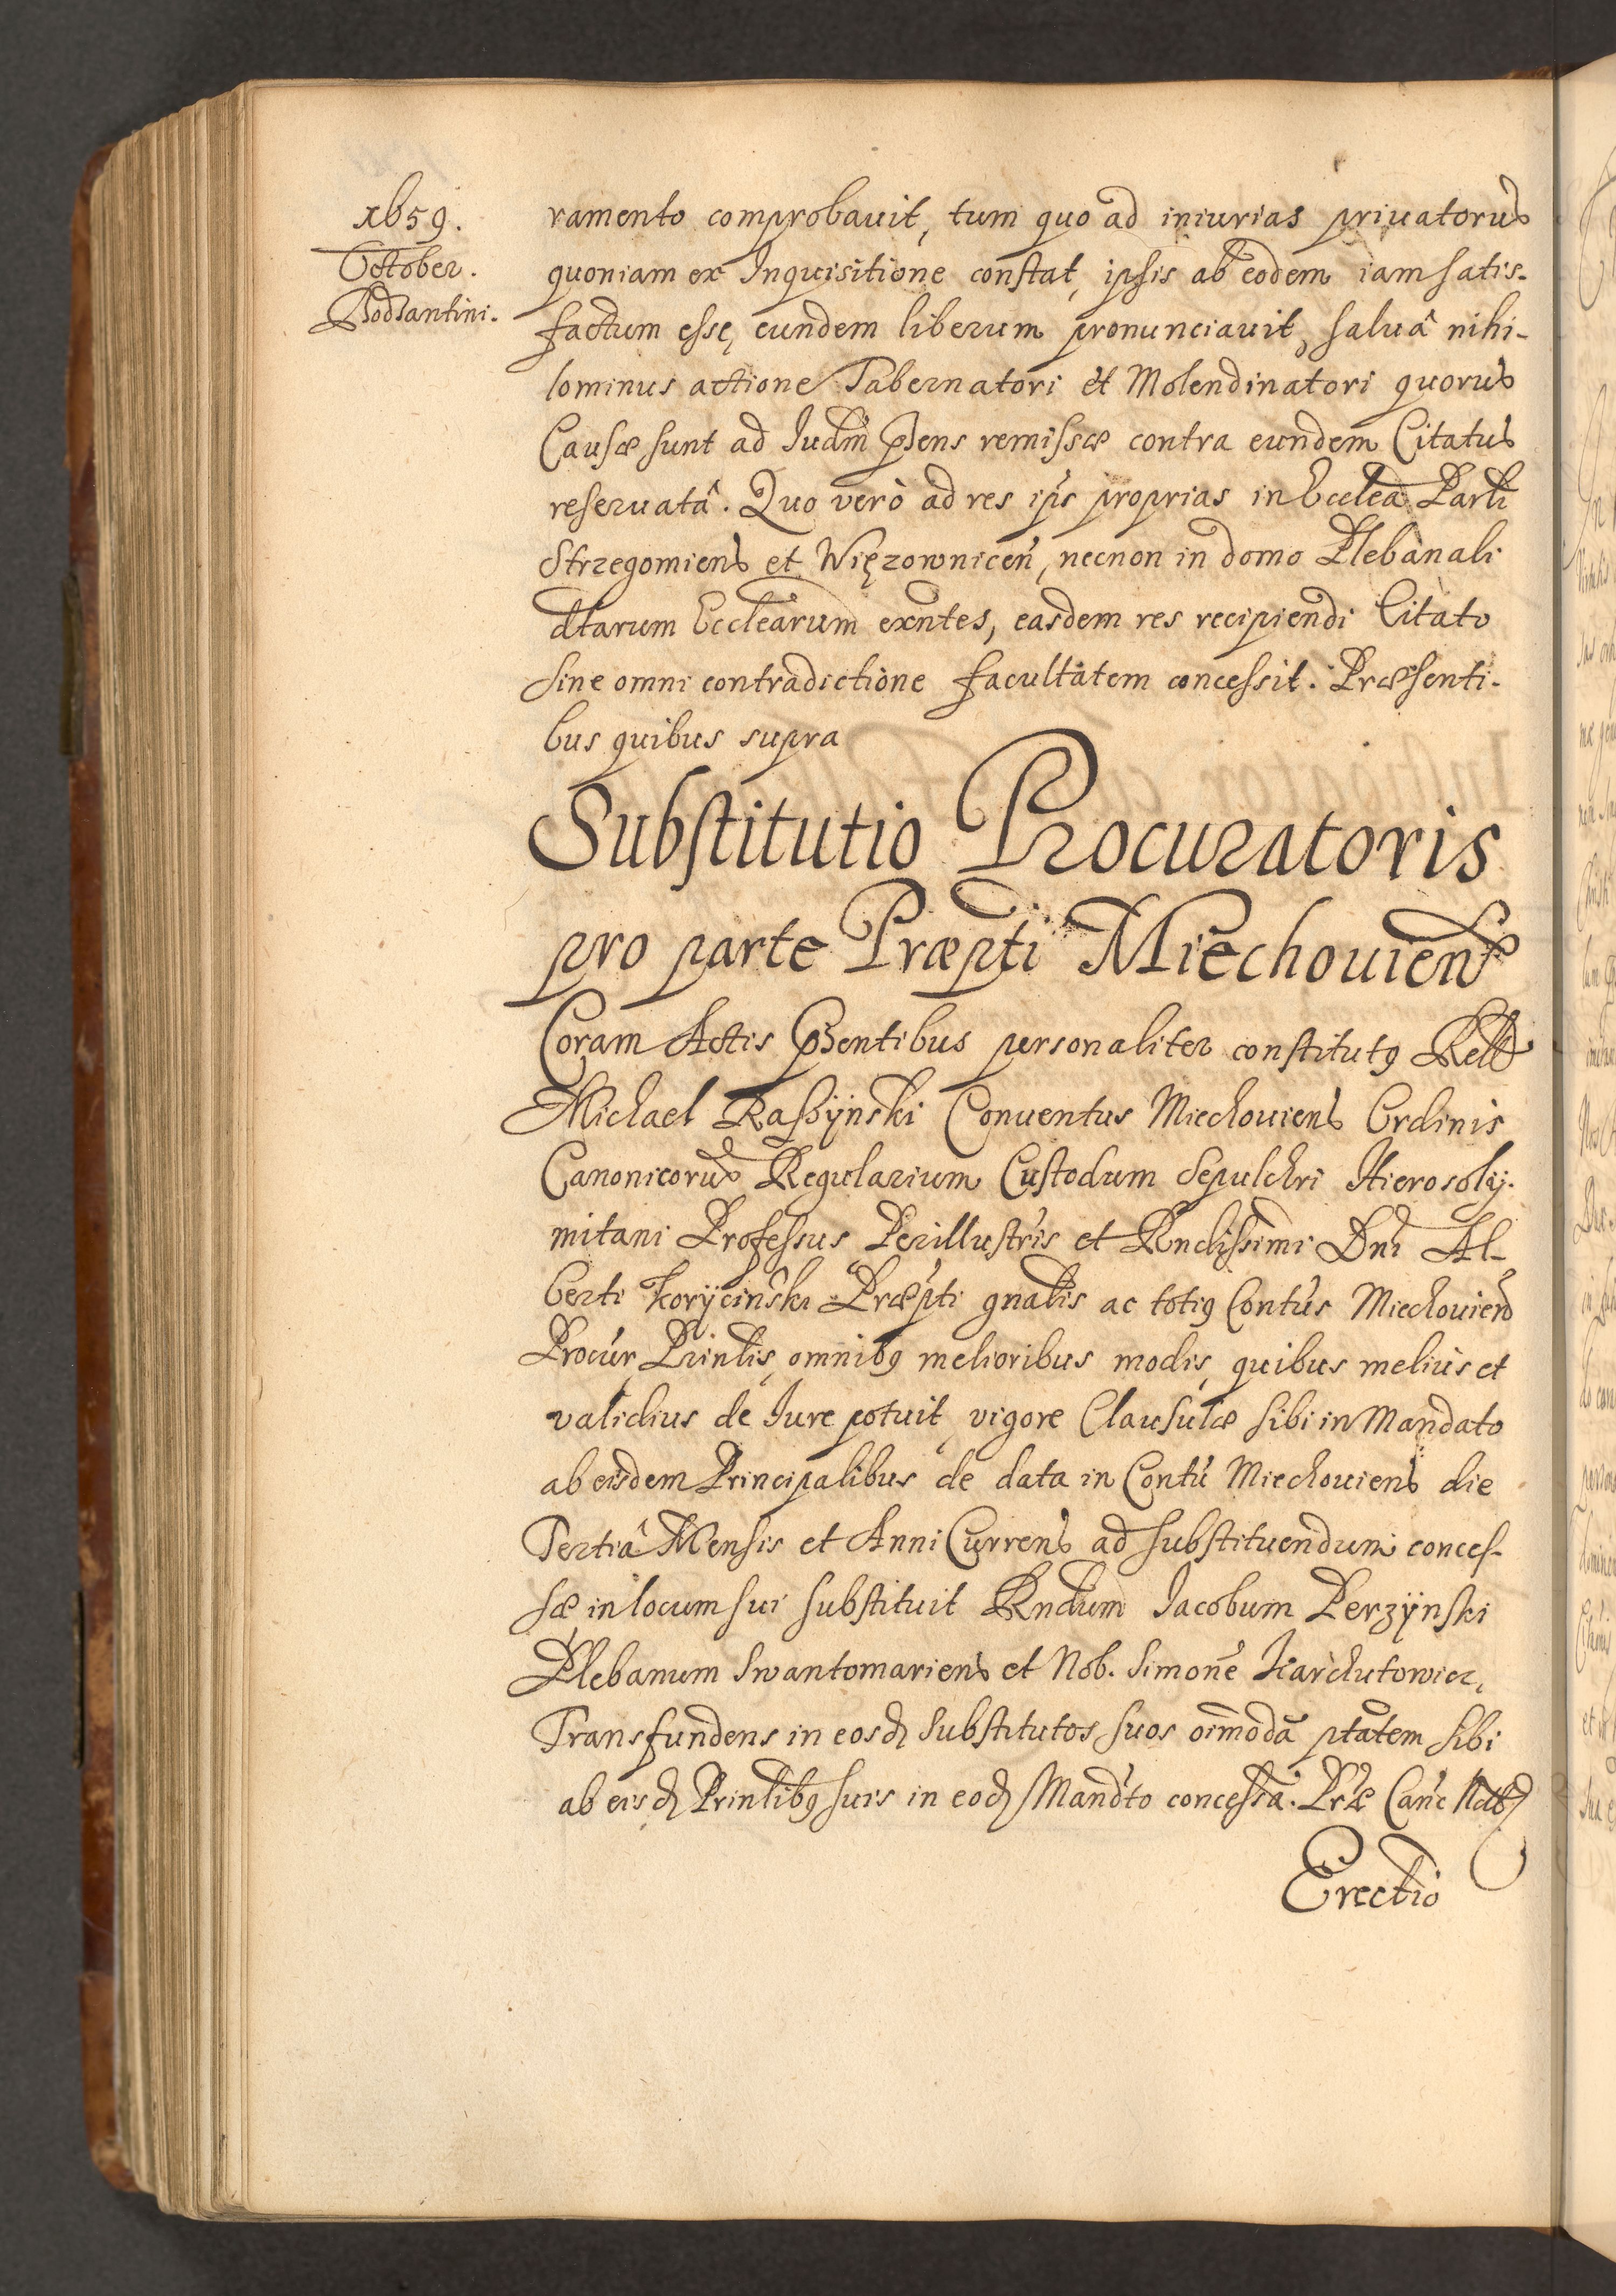 xb59.
October.
Bodzantini.
ramento comprobauit, tum quo ad iniurias priuatorum
quoniam ex Inquisitione constat, ipsis ab eodem iam satis-
factum esse, eundem liberum pronunciauit, saluâ nihi-
lominus actione Tabernatori et Molendinatori quorum
Causæ sunt ad Iudm pñs remissæ contra eundem Citatum
reseruatâ. Quo verò ad res ips proprias in Ecclea Parli
Strzegomiens et Więzowniceñ, necnon in domo Plebanali
dtarum Ecclearum exntes, easdem res recipiendi Citato
sine omni contradictione facultatem concessit. Præsenti-
bus quibus supra
Substitutio Procuratoris
pro parte Præpti Miechouiens
Coram Actis pñtibus personaliter constitutus Rels
Michael Raszynski Conuentus Miechouiens Ordinis
Canonicorum Regularium Custodum Sepulchri Hierosoly-
mitani Professus Perillustris et Rndissimi Dni Al-
berti Korycinski Præpti gnalis ac totius Contus Miechouiens
Procur Prinlis, omnibus melioribus modis, quibus melius et
validius de Iure potuit, vigore Clausulæ sibi in Mandato
ab eisdem Principalibus de data in Contu Miechouiens die
Tertiâ Mensis et Anni Currens ad substituendum conces-
sæ in locum sui substituit Rndum Iacobum Perzynski
Plebanum Swantomariens et Nob. Simonē Karchutowicz,
Transfundens in eosd substitutos suos oimodā ptatem sibi
ab eisd Prinlibus suis in eod Mandto concessā. Prte Canc Notb
Erectio